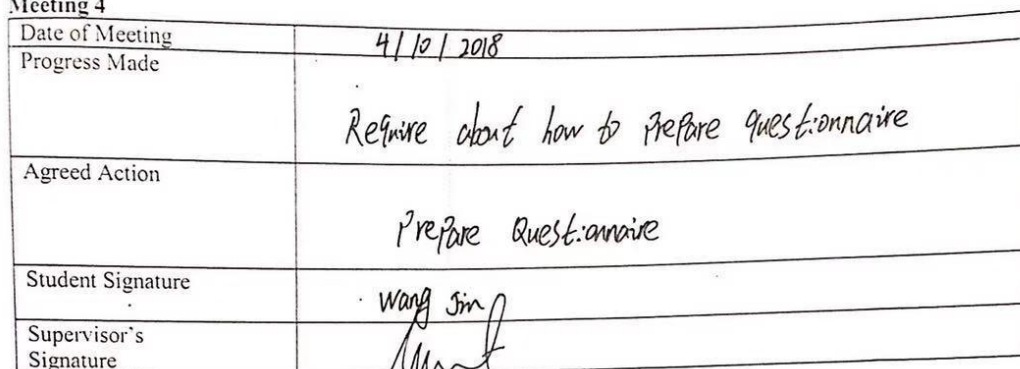 Meeting 4
Date of Meeting
4/10/2018
Progress Made
Require about how to prepare questionnaire
Agreed Action
Prepare Questionnaire
Student Signature
Wang Jin
Supervisor's
Signature